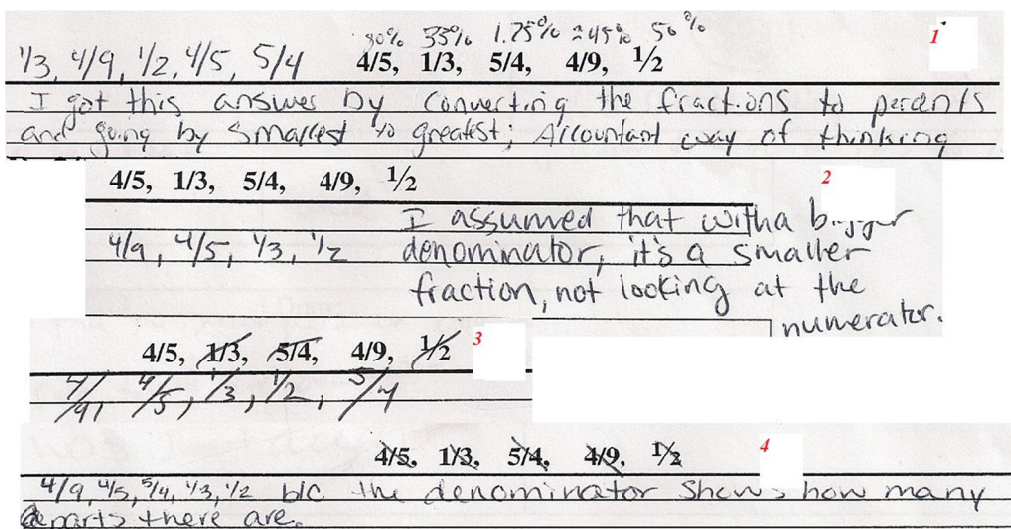 80% 33% 1.25% ≈45% 50%
1
1/3, 4/9, 1/2, 4/5, 5/4 4/5, 1/3, 5/4, 4/9, ½
I got this answer by converting the fractions to percents
and going by smallest to greatest; Accountant way of thinking
4/5, 1/3, 5/4, 4/9, ½
2
I assumed that with a bigger
4/9, 4/5, 1/3, 1/2 denominator, it's a smaller
fraction, not looking at the
numerator.
4/5, 1/3, 5/4, 4/9, ½
3
4/9, 4/5, 1/3, 1/2, 5/4
4/5, 1/3, 5/4, 4/9, ½
4
4/9, 4/5, 5/4, 1/3, 1/2 b/c the denominator shows how many
parts there are.